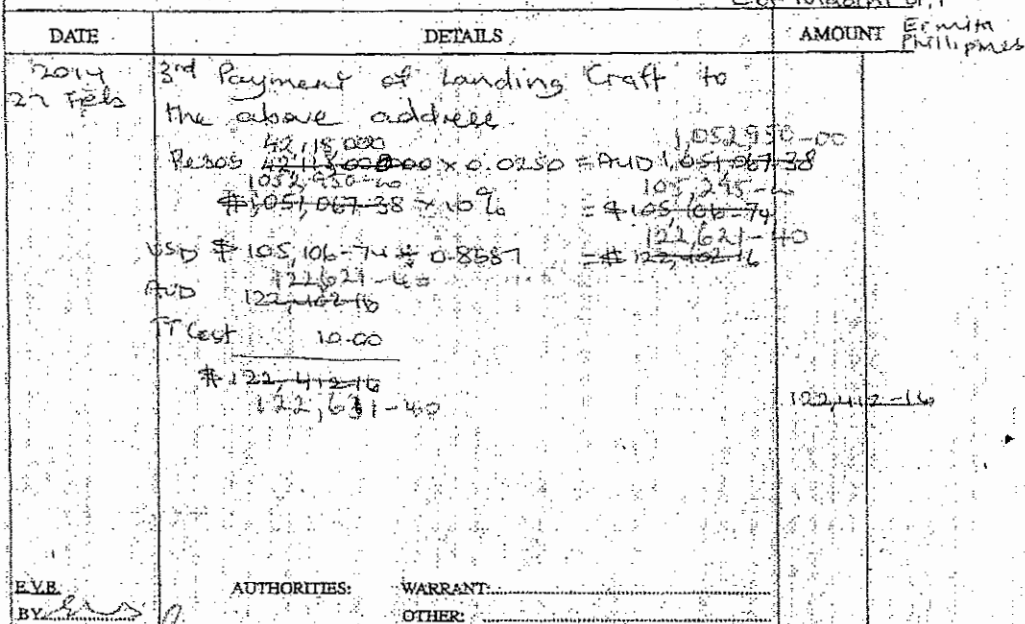 DATE DETAILS AMOUNT Ermita
Phillipines
2014 3rd Payment of Landing Craft to
27 Feb the above address
42,118,000 1,052,950-00
Pesos 42,118,000.00 x 0.0250 = AUD 1,051,067-38
1052,950-00 105,295-00
$1,051,067-38 10% = $105,106-74
122,621-40
USD $105,106-74 ÷ 0.8587 = $122,402-16
122,621-40
AUD 122,402-16
TT Cost 10.00
$122,412-16
122,631-40 122,412-16
E.V.B. AUTHORITIES: WARRANT:
BY OTHER: